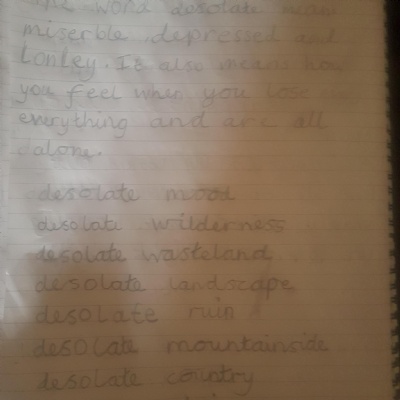 The word desolate mean
miserble depressed and
Lonley. It also means how
you feel when you lose
everything and are all
alone.
desolate mood
desolate wilderness
desolate wasteland
desolate landscape
desolate ruin
desolate mountainside
desolate country